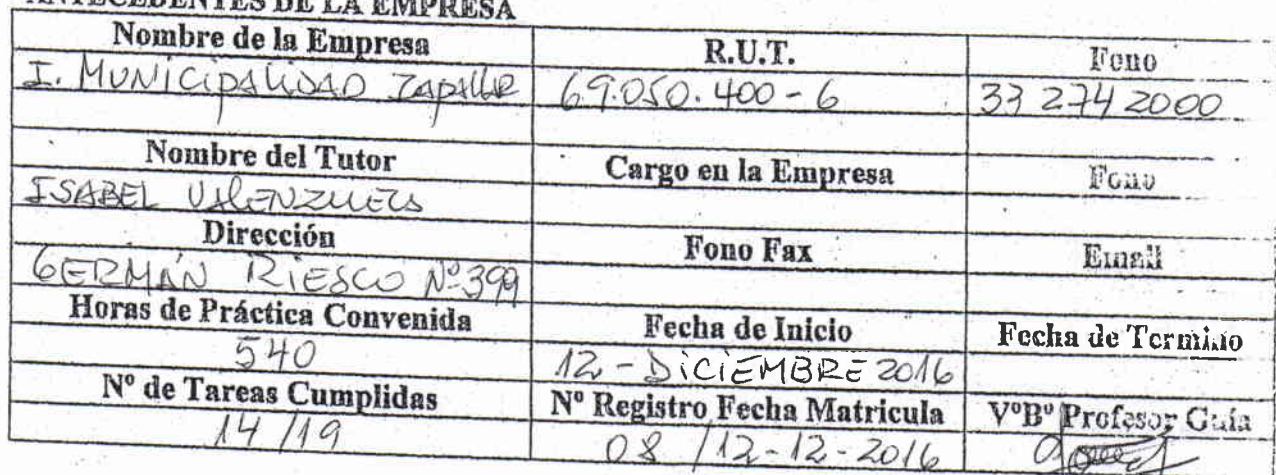 ANTECEDENTES DE LA EMPRESA
Nombre de la Empresa R.U.T. Fono
I. MUNICIPALIDAD ZAPALLAR 69.050.400-6 33 274 2000
Nombre del Tutor Cargo en la Empresa Fono
ISABEL VALENZUELA
Dirección Fono Fax Email
GERMÁN RIESCO Nº 399
Horas de Práctica Convenida Fecha de Inicio Fecha de Termino
540 12 - DICIEMBRE 2016
Nº de Tareas Cumplidas Nº Registro Fecha Matricula VºBº Profesor Guía
14 / 19 08 / 12-12-2016